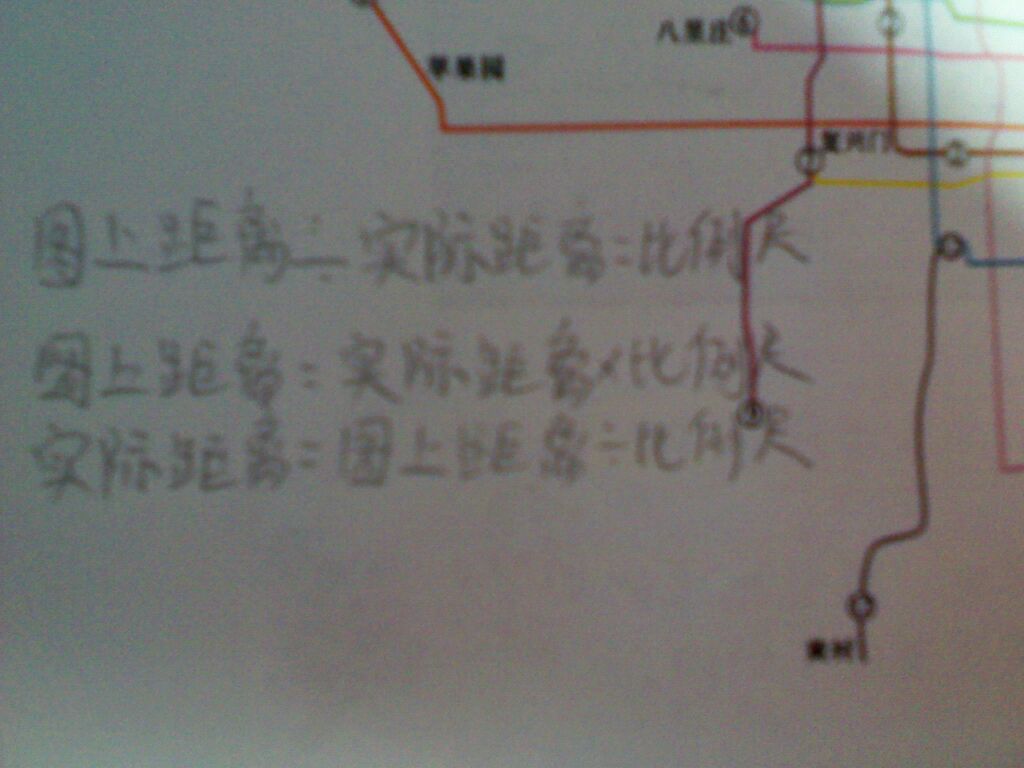 八里庄④
苹果园
复兴门
②
图上距离÷实际距离=比例尺
图上距离=实际距离×比例尺
实际距离=图上距离÷比例尺
黄村